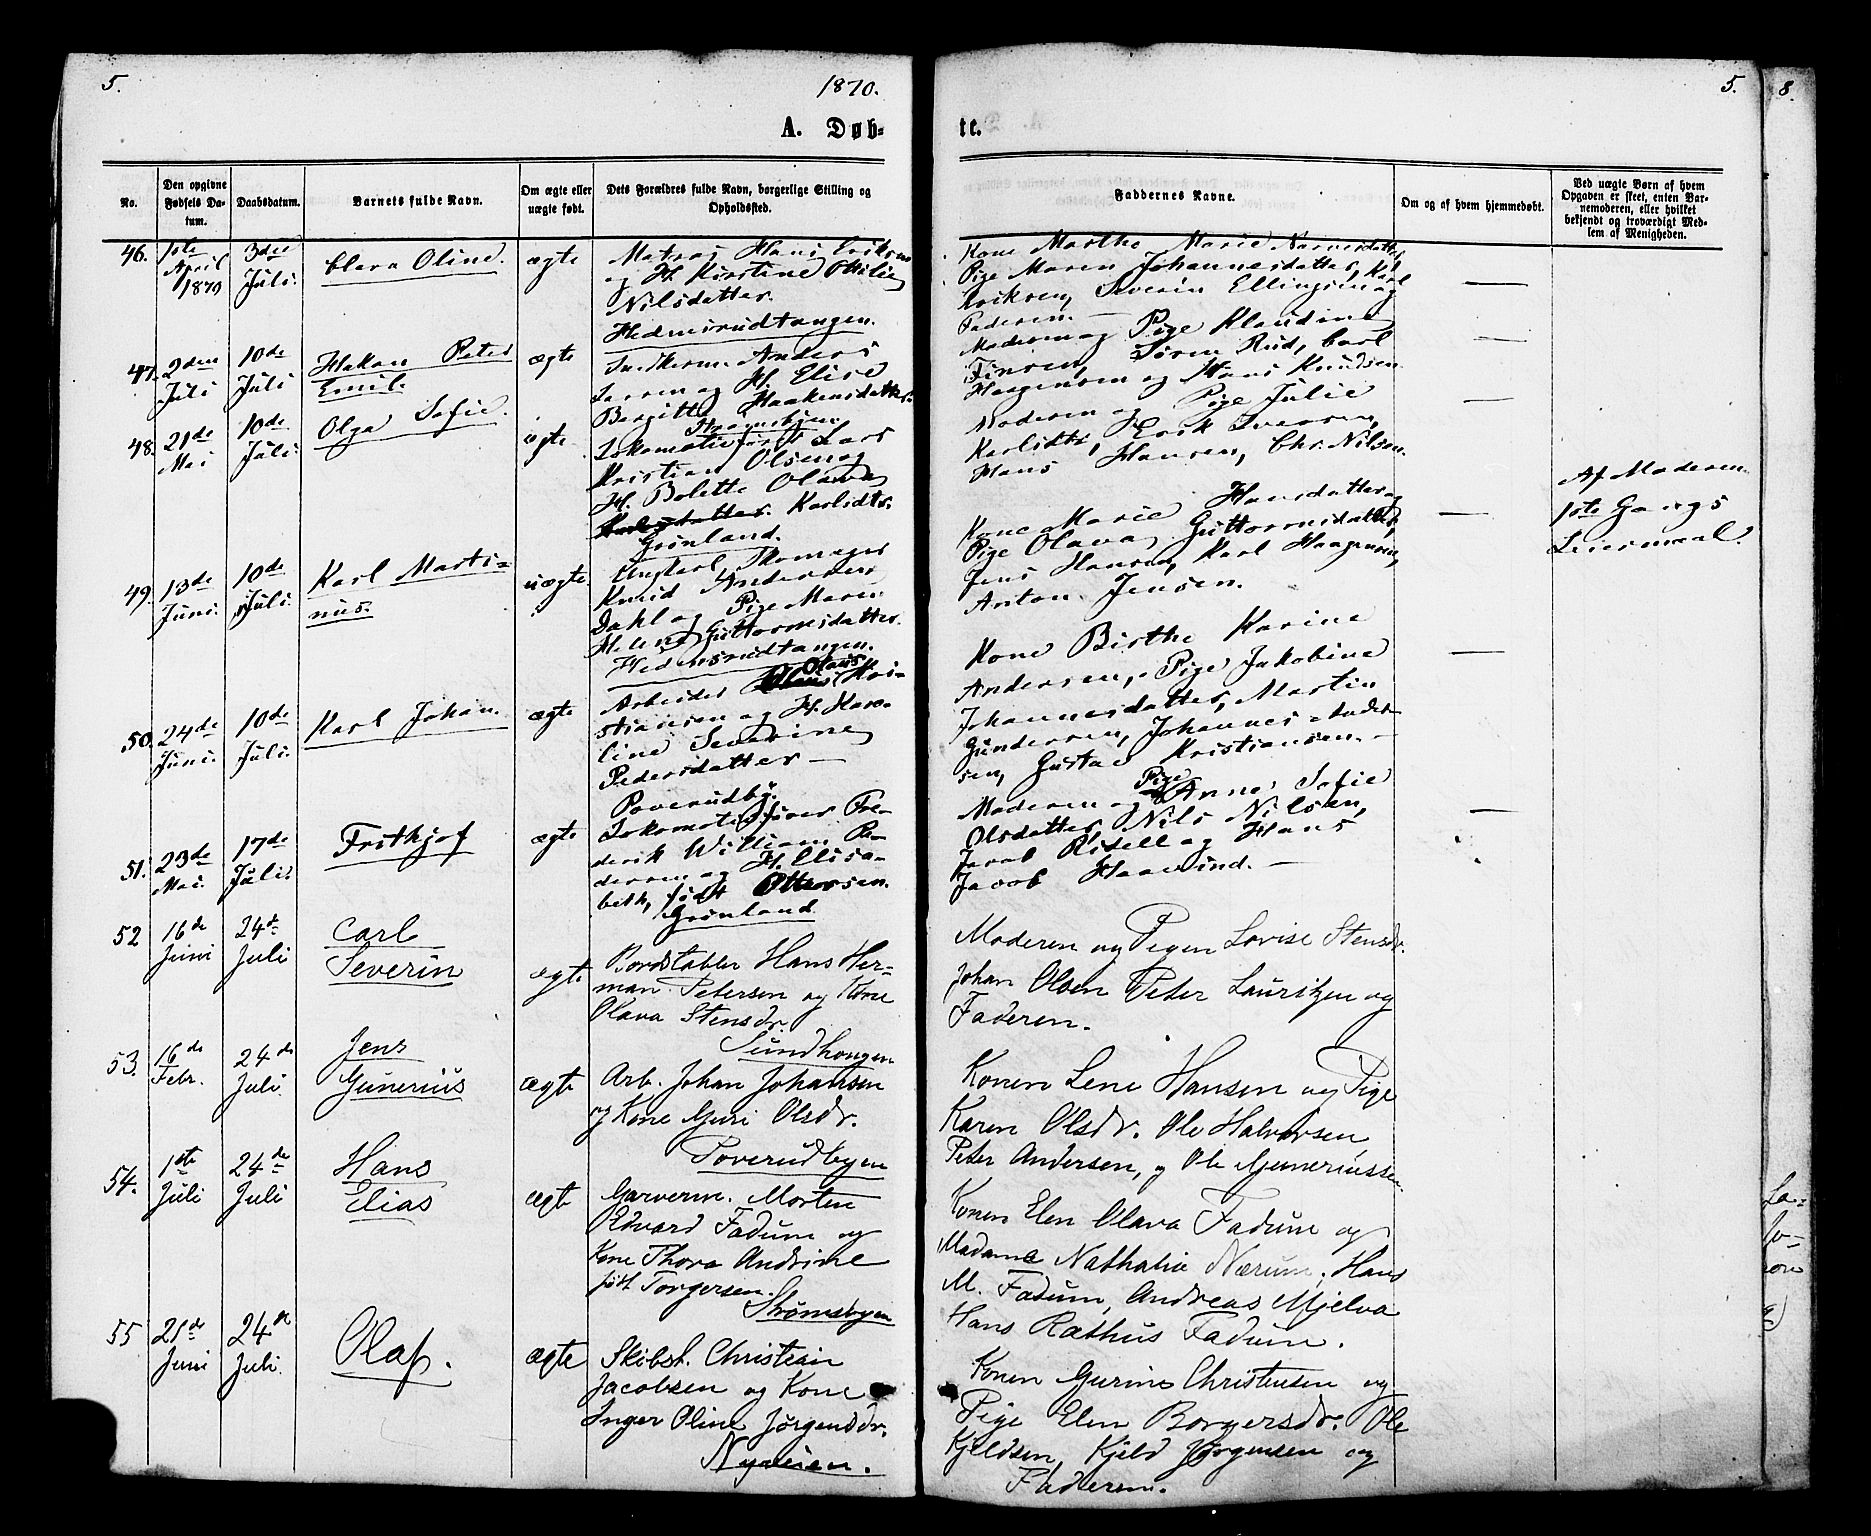 5.
1870.
5.
8.
A. Døb-
te.
No.
Den opgivne
Fødsels Da-
tum.
Daabsdatum.
Barnets fulde Navn.
Om ægte eller
uægte født.
Dets Forældres fulde Navn, borgerlige Stilling og
Opholdssted.
Faddernes Navne.
Om og af hvem hjemmedøbt.
Ved uægte Børn af hvem
Opgaven er skeet, enten Bar-
nemoderen, eller hvilket
bekjendt og troværdigt Med-
lem af Menigheden.
46.
1ste
April
1870
3die
Juli.
Clara Oline.
ægte
Matros Hans Eriksen
og H. Kirstine Otilie
Nilsdatter.
Hedensrudtangen.
Kone Marthe Marie Narvesdatter,
Pige Maren Johannesdatter, Karl
Eriksen, Severin Ellingsen og
Faderen. —
47.
2den
Juli
10de
Juli
Hakon Peter
Emil.
ægte
Anders
Larsen og H. Elise
Bergitte Haakensdatter.
Strømsbyen.
Moderen og Pige Klaudine
Finsen, Søren Rud, Carl
Hansen og Hans Knudsen.
48.
21de
Mai
10de
Juli.
Olga Sofie.
ægte
Lokomotivfører Lars
Kristian Olsen og
H. Bolette Olava
Karlsdtr.
Grønland.
Moderen og Pige Julie
Karlsdtr, Erik Iversen,
Hans Hansen, Chr. Nilsen.
49.
13de
Juni.
10de
Juli.
Karl Marti-
nus.
uægte.
Ungkarl Skomager
Knud Andersen
Dahl og Pige Maren
Helene Guttormsdatter.
Hedensrudtangen.
Kone Marie Hansdatter og
Pige Olava Guttormsdatter,
Jens Hansen, Karl Haagensen,
Anton Jensen.
Af Moderen.
1ste Gangs
Leiermaal.
50.
24de
Juni.
10de
Juli.
Karl Johan.
ægte
Arbeider Olaus Kri-
stiansen og H. Karo-
line Severine
Pedersdatter —
Poverudby.
Kone Birthe Karine
Andersen, Pige Jakobine
Johannesdatter, Martin
Gundersen, Johannes Ander-
sen, Gustav Kristiansen. —
51.
23de
Mai.
17de
Juli.
Frithjof
ægte
Lokomotivfører Fre-
derik William Pe-
dersen og H. Elisa-
beth, født Ottersen.
Grønland.
Moderen og Pige Anne Sofie
Olsdatter, Nils Nilsen,
Jacob Risell og Hans
Jacob Haavind. —
52
16de
Juni
24de
Juli
Carl
Severin
ægte
Bordstabler Hans Her-
man Petersen og Kone
Olava Stensdr.
Sundhaugen
Moderen og Pigen Lovise Stensdr.
Johan Olsen Peter Lauritzen og
Faderen.
53.
16de
Febr.
24de
Juli.
Jens
Gunerius
ægte
Arb. Johan Johansen
og Kone Guri Olsdr.
Poverudbyen
Konen Lene Hansen og Pige
Karen Olsdr. Ole Halvorsen
Peter Andersen, og Ole Guneriussen.
54.
1ste
Juli
24de
Juli
Hans
Elias
ægte
Garverm. Morten
Edvard Fadum og
Kone Thora Andrine
født Torgersen.
Strømsbyen
Konen Elen Olava Fadum og
Madame Nathalia Nærum. Hans
M. Fadum, Andreas Mjelva
Hans Rathus Fadum.
55
21de
Juni
24de
Juli.
Olaf.
ægte
Skibst. Christian
Jacobsen og Kone
Inger Oline Jørgensdr.
Nyveien.
Konen Gurine Christensen og
Pige Elen Borgersdr. Ole
Kjeldsen, Kjeld Jørgensen og
Faderen.